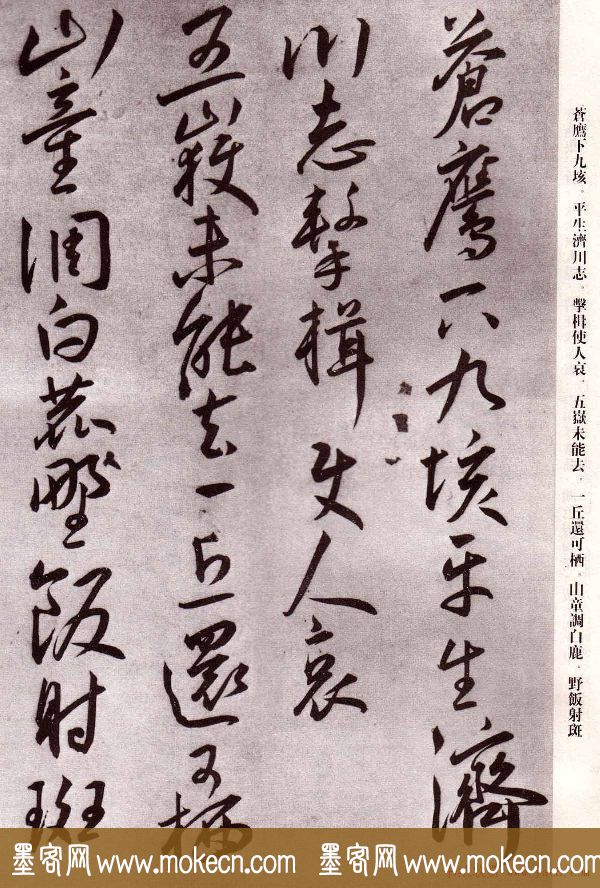 蒼鷹下九垓平生濟
川志擊楫使人哀
五嶽未能去一丘還可栖
山童調白鹿野飯射斑
蒼鷹下九垓。平生濟川志。擊楫使人哀。五嶽未能去。一丘還可栖。山童調白鹿。野飯射斑
墨客网www.mokecn.com 墨客网www.mokecn.com